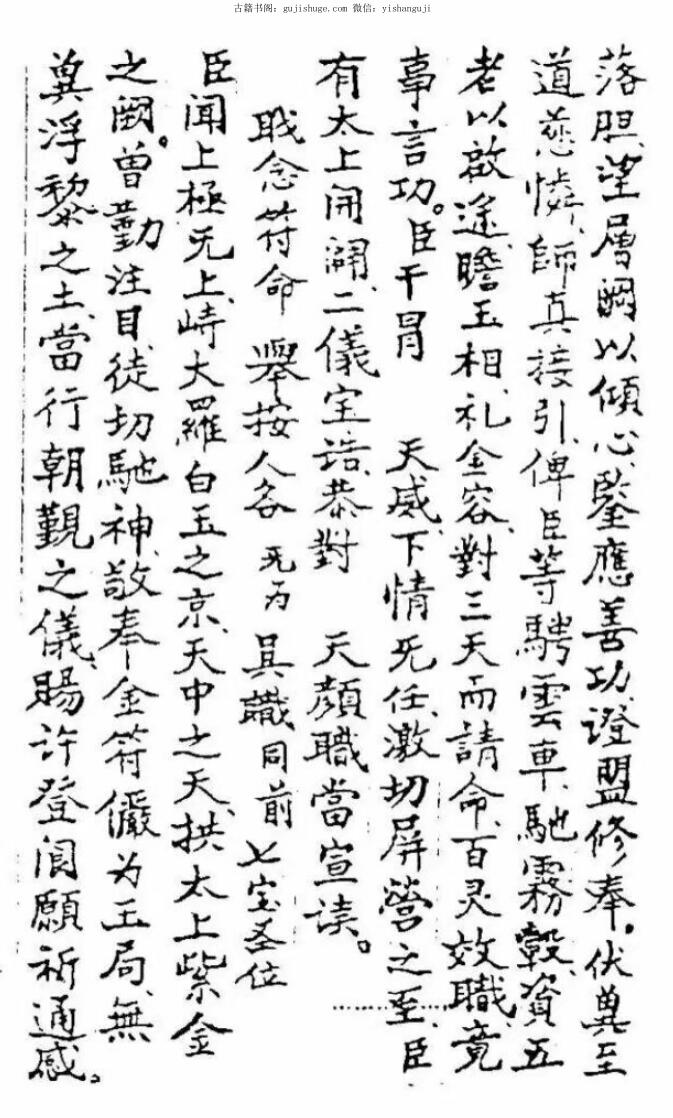 古籍书阁：gujishuge.com 微信：yishanguji
落胆、望層闕以傾心、鑒應善功、證盟修奉。伏兾至
道慈憐、師真接引、俾臣等騁雲車、馳霧轂、資五
老以啟途、瞻玉相、礼金容、對三天而請命、百灵效職、竟
事言功。臣干冒 天威、下情旡任、激切屏營之至、臣
有太上開闢、二儀宝誥、恭對 天顔、職當宣读。
戝念符命 舉按人各 旡为 具職同前 七宝圣位
臣聞上極旡上、崎大羅白玉之京、天中之天、拱太上紫金
之闕。曾勤注目、徒切馳神、敬奉金符、儼为玉局、無
兾浮黎之土、當行朝覲之儀、賜許登阆、願祈通感。